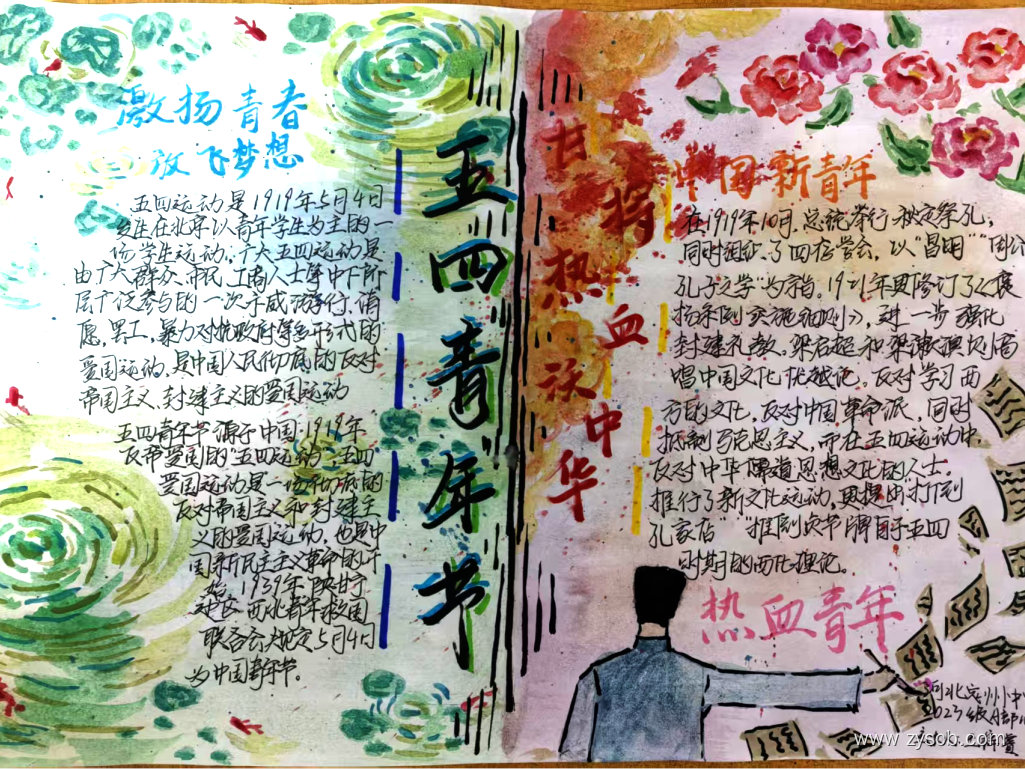 激扬青春
放飞梦想
五四运动是1919年5月4日
发生在北京以青年学生为主的一
场学生运动,广大五四运动是
由广大群众、市民、工商人士等中下阶
层广泛参与的一次示威游行、请
愿、罢工、暴力对抗政府等多形式的
爱国运动,是中国人民彻底的反对
帝国主义、封建主义的爱国运动
五四青年节源于中国1919年
反帝爱国的"五四运动",五四
爱国运动是一场彻底的
反对帝国主义和封建主
义的爱国运动,也是中
国新民主主义革命的开
始。1939年陕甘宁
边区西北青年救国
联合会规定5月4日
为中国青年节。
五四青年节
甘将热血沃中华
中国新青年
在1919年10月,总统举行秋定祭孔,
同时组织了四存学会,以"昌明"周公
孔子之学"为宗旨。1921年又修订了《褒
扬条例实施细则》,进一步强化
封建礼教。梁启超和梁漱溟
唱中国文化优越论。反对学习西
方的文化,反对中国革命派,同时
抵制马克思主义,而在五四运动中,
反对中华儒道思想文化的人士。
推行了新文化运动,更提出"打到
孔家店""推到贞节牌"由于五四
时期的西化理论。
热血青年
河北定州中
2023级A部
www.zysob.com